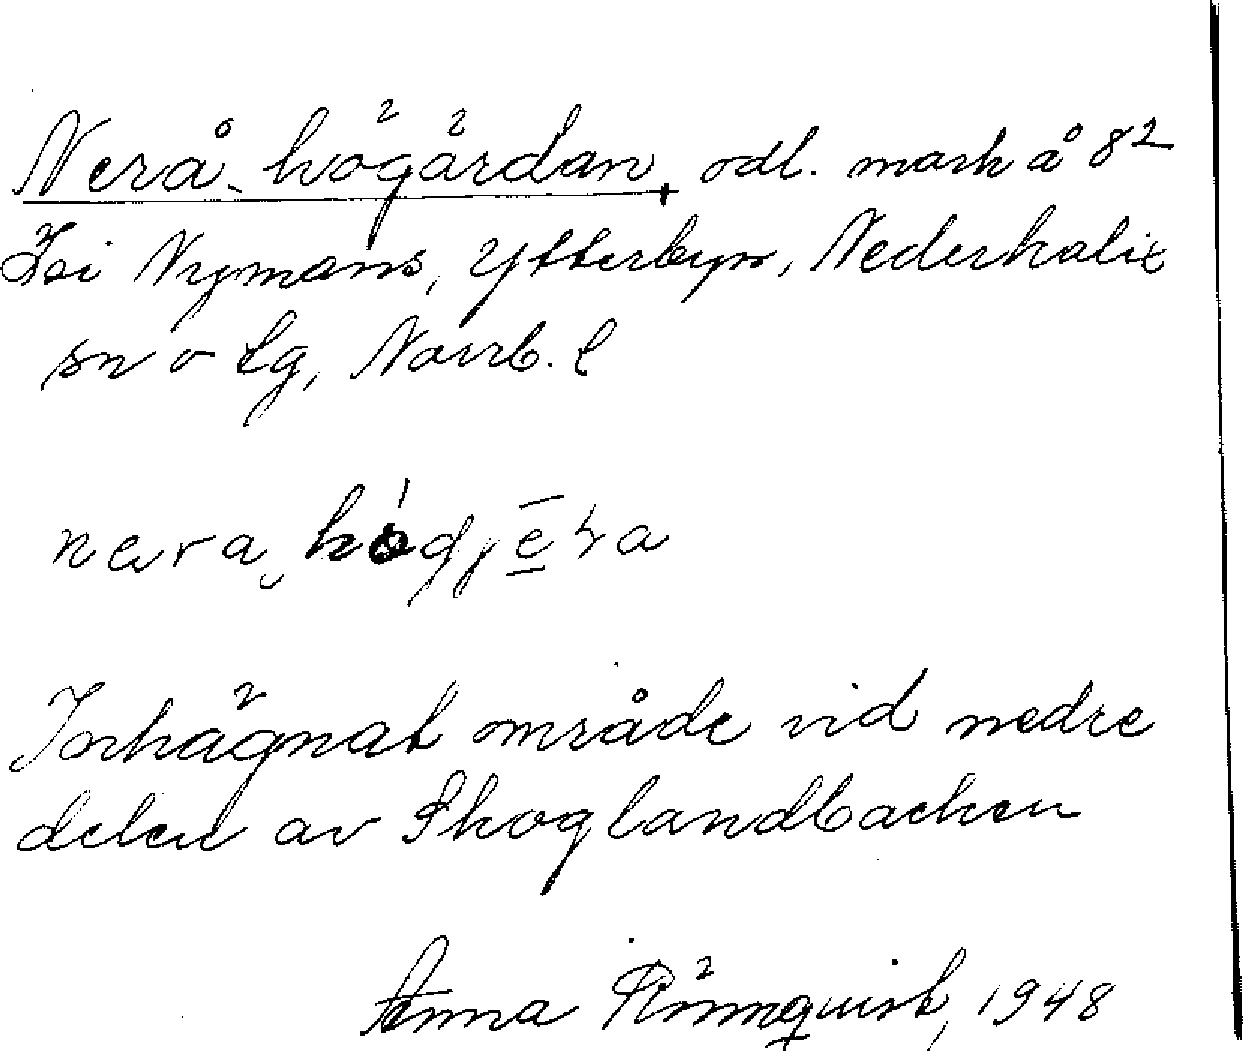 Nerå-högärdan, odl. mark å 8²
Isi Nymans, Ytterbyn, Nederkalix
sn o tg, Norrb. l
Inhägnat område vid nedre
delen av Skoglandbacken
Anna Rönnquist, 1948